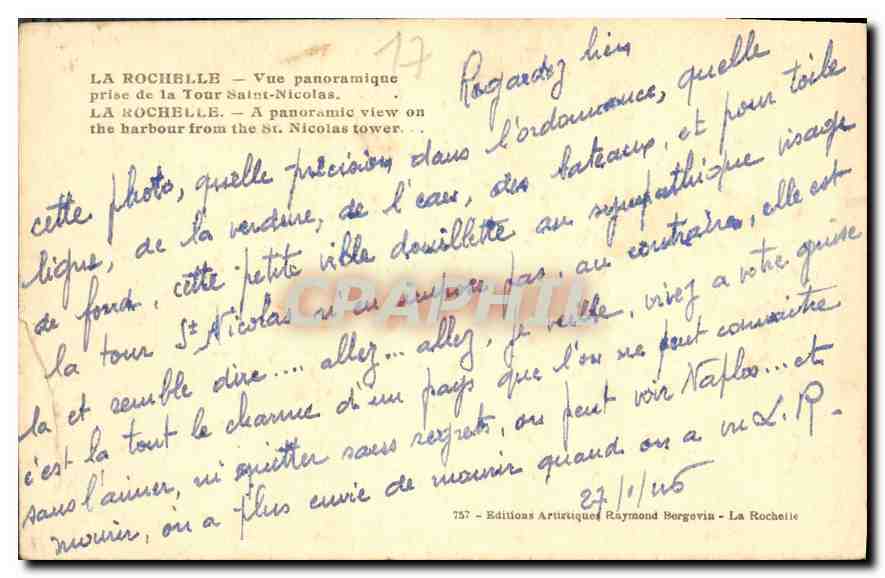 17
LA ROCHELLE — Vue panoramique
prise de la Tour Saint-Nicolas.
LA ROCHELLE. — A panoramic view on
the harbour from the St. Nicolas tower...
Regardez bien
cette photo, quelle précision dans l'ordonnance, quelle
ligne, de la verdure, de l'eau, des bateaux, et pour toile
de fond, cette petite ville douillette au sympathique visage
la tour St Nicolas n'en impose pas, au contraire, elle est
la et semble dire.... allez... allez, je veille, vivez a votre guise
c'est la tout le charme d'un pays que l'on ne peut connaitre
sans l'aimer, ni quitter sans regrets, on peut voir Naples... et
mourir, on a plus envie de mourir quand on a vu L.R.
27/1/46
757 - Editions Artistiques Raymond Bergevin - La Rochelle
CPAPHIL